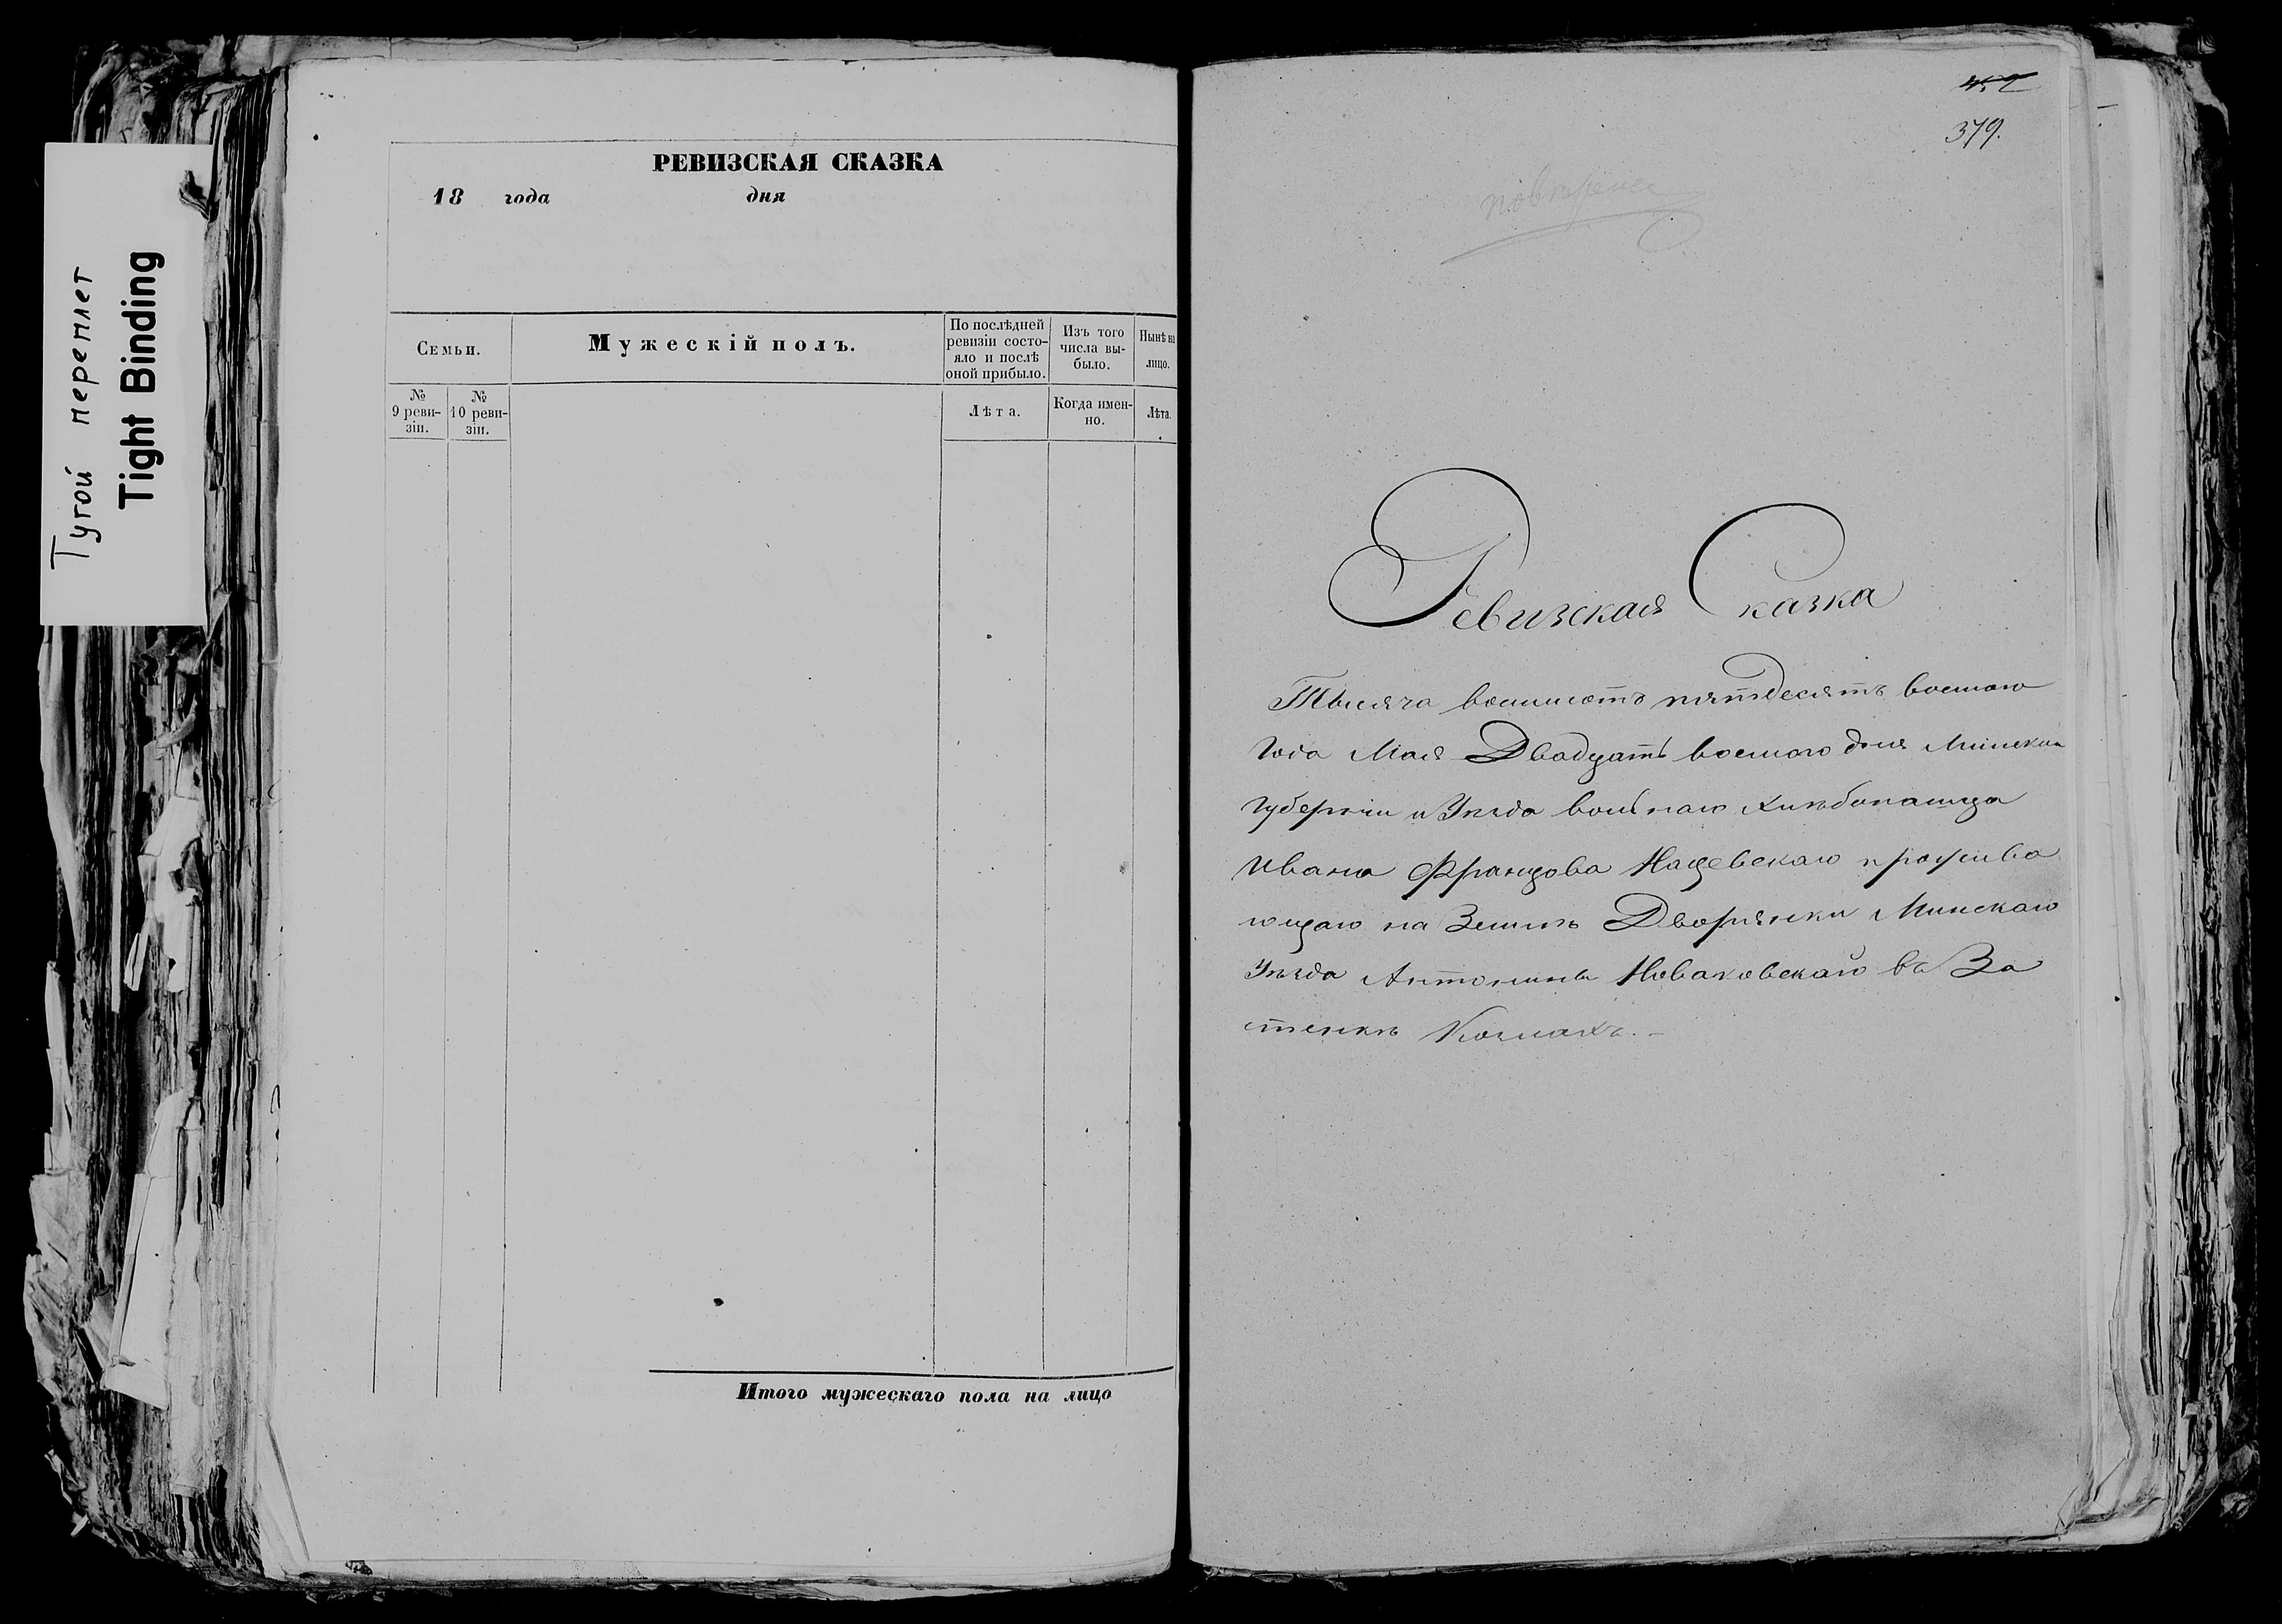 Тугой переплет
Tight Binding
РЕВИЗСКАЯ СКАЗКА
18 года дня
Семьи.
Мужескій полъ.
По послѣдней
ревизіи состо-
яло и послѣ
оной прибыло.
Изъ того
числа вы-
было.
Нынѣ на
лицо.
№
9 реви-
зіи.
№
10 реви-
зіи.
Лѣта.
Когда имен-
но.
Лѣта.
Итого мужескаго пола на лицо
379.
Ревизская Сказка
Тысяча восимсотъ пятдесятъ восмого
Года Мая Двадцать восмого дня Минской
Губерніи и Уѣзда вольнаго хлѣбопашца
Ивана Францова Нацевскаго прожива
ющаго на Землѣ Дворянки Минскаго
Уѣзда Антонины Новаковскаго въ За
стенкѣ